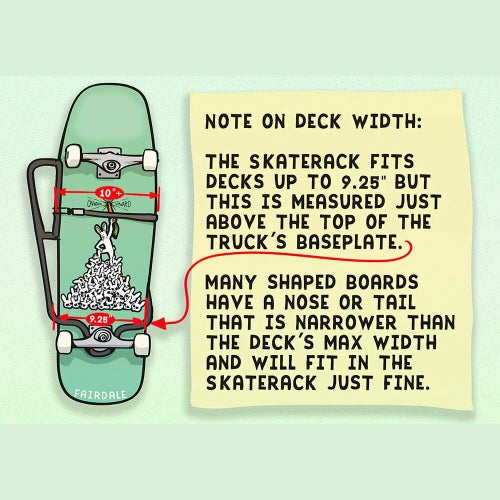 10"+
9.25
FAIRDALE
NOTE ON DECK WIDTH:
THE SKATERACK FITS
DECKS UP TO 9.25" BUT
THIS IS MEASURED JUST
ABOVE THE TOP OF THE
TRUCK'S BASEPLATE.
MANY SHAPED BOARDS
HAVE A NOSE OR TAIL
THAT IS NARROWER THAN
THE DECK'S MAX WIDTH
AND WILL FIT IN THE
SKATERACK JUST FINE.